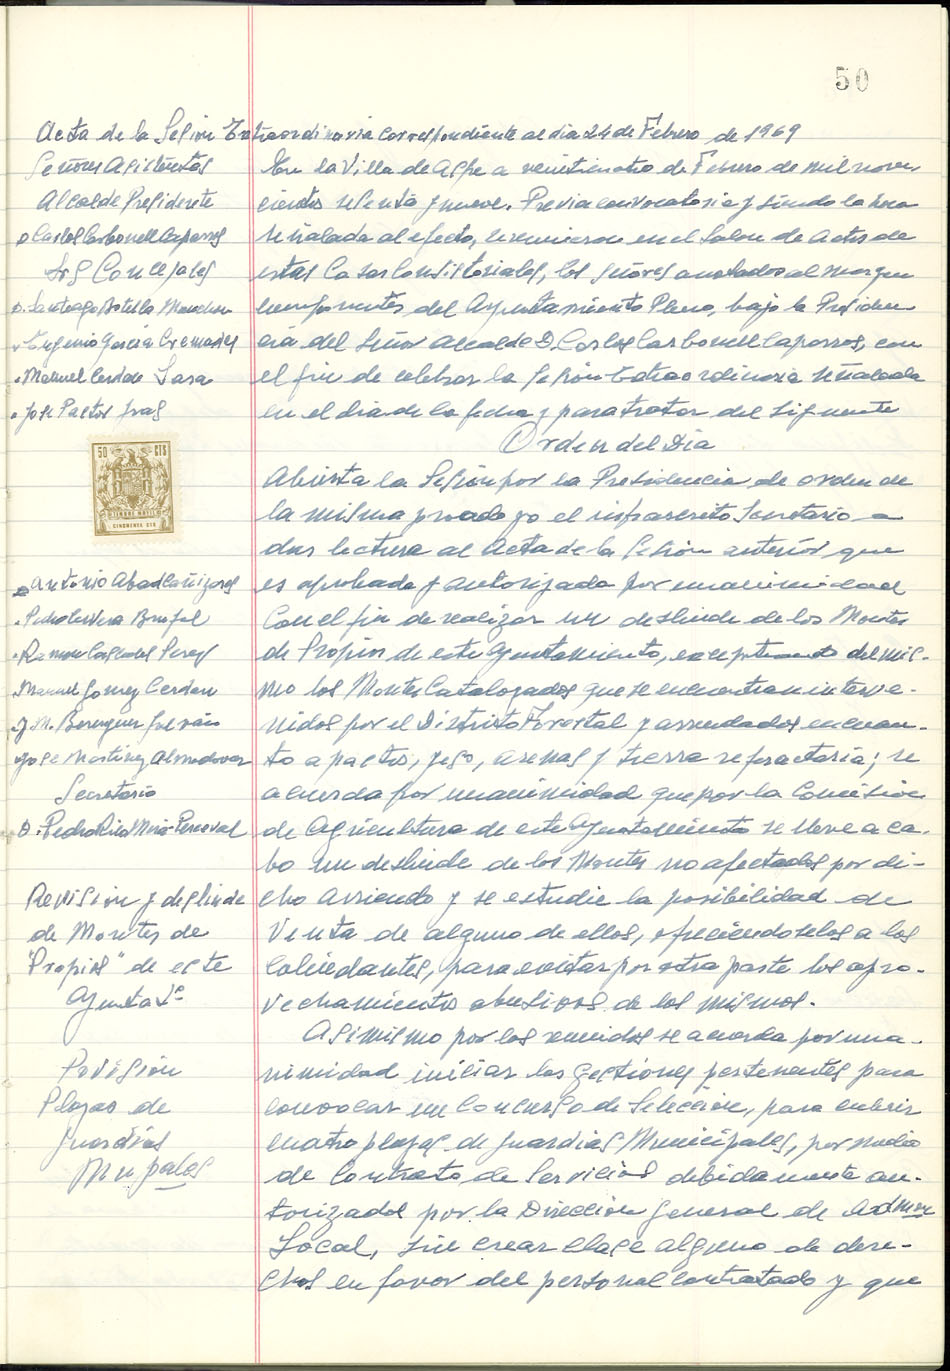 50
Acta de la Sesión Extraordinaria correspondiente al dia 24 de Febrero de 1969
Señores Asistentes
Alcalde Presidente
D Carlos Carbonell Caparros
Srs Concejales
D. Santiago Botella Monchon
" Eugenio Garcia Cremades
" Manuel Cerdan Lara
" Jose Pastor Gras
50 CTS
TIMBRE MOVIL
CINCUENTA CTS
D. Antonio Abad Cañizares
" Pedro Cervera Brufal
" Ramon Cascales Perez
" Manuel Gomez Cerdan
" J. M. Berenguer Galván
" Jose Martinez Almodovar
Secretario
D. Pedro Rita Miró Perceval
Revision y deslinde
de Montes de
"Propios" de este
Ayuntaᵗᵒ
Provisión
Plazas de
Guardias
Mupales
En la Villa de Aspe a veinticuatro de Febrero de mil nove
cientos setenta y nueve. Previa convocatoria y siendo la hora
señalada al efecto, se reunieron en el Salon de Actos de
estas Casas Consistoriales, los señores anotados al margen
componentes del Ayuntamiento Pleno, bajo la Presiden
cia del Señor Alcalde D. Carlos Carbonell Caparros, con
el fin de celebrar la Sesión Extraordinaria señalada
en el dia de la fecha y para tratar del siguiente
Orden del Dia
Abierta la Sesión por la Presidencia de orden de
la misma procedo yo el infrascrito Secretario a
dar lectura al Acta de la Sesión anterior que
es aprobada y autorizada por unanimidad
Con el fin de realizar un deslinde de los Montes
de Propios de este Ayuntamiento, exceptuando del mis-
mo los Montes Catalogados que se encuentran interve-
nidos por el Distrito Forestal y arrendados en cuan-
to a pastos, yeso, arenas y tierra refractaria; se
acuerda por unanimidad que por la Comisión
de Agricultura de este Ayuntamiento se lleve a ca-
bo un deslinde de los Montes no afectados por di-
cho arriendo y se estudie la posibilidad de
Venta de alguno de ellos, ofreciendoselos a los
Colindantes, para evitar por otra parte los apro-
vechamientos abusivos de los mismos.
Asimismo por los reunidos se acuerda por una-
nimidad iniciar las gestiones pertenentes para
convocar un Concurso de Selección, para cubrir
cuatro plazas de Guardias Municipales, por medio
de Contrato de Servicios debidamente au-
torizados por la Dirección General de Admon
Local, sin crear clase alguno de dere-
chos en favor del personal contratado y que